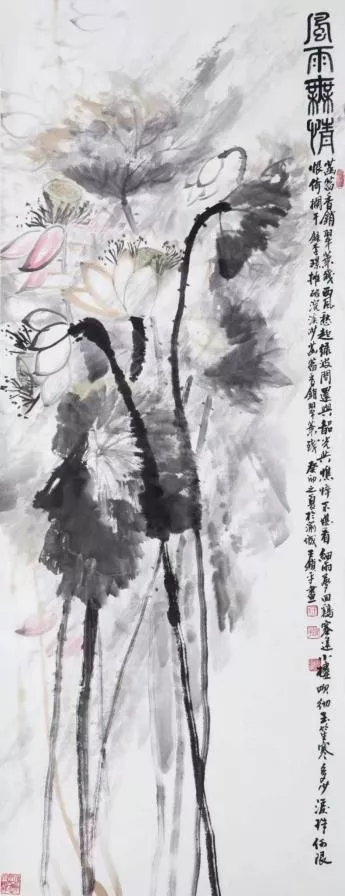 風雨無情
菡萏香銷翠葉殘西風愁起綠波間還與韶光共憔悴不堪看細雨夢回鷄塞遠小樓吹徹玉笙寒多少淚珠何限
恨倚欄干 錄李璟攤破浣溪沙菡萏香銷翠葉殘 癸卯之夏於 王 平畫